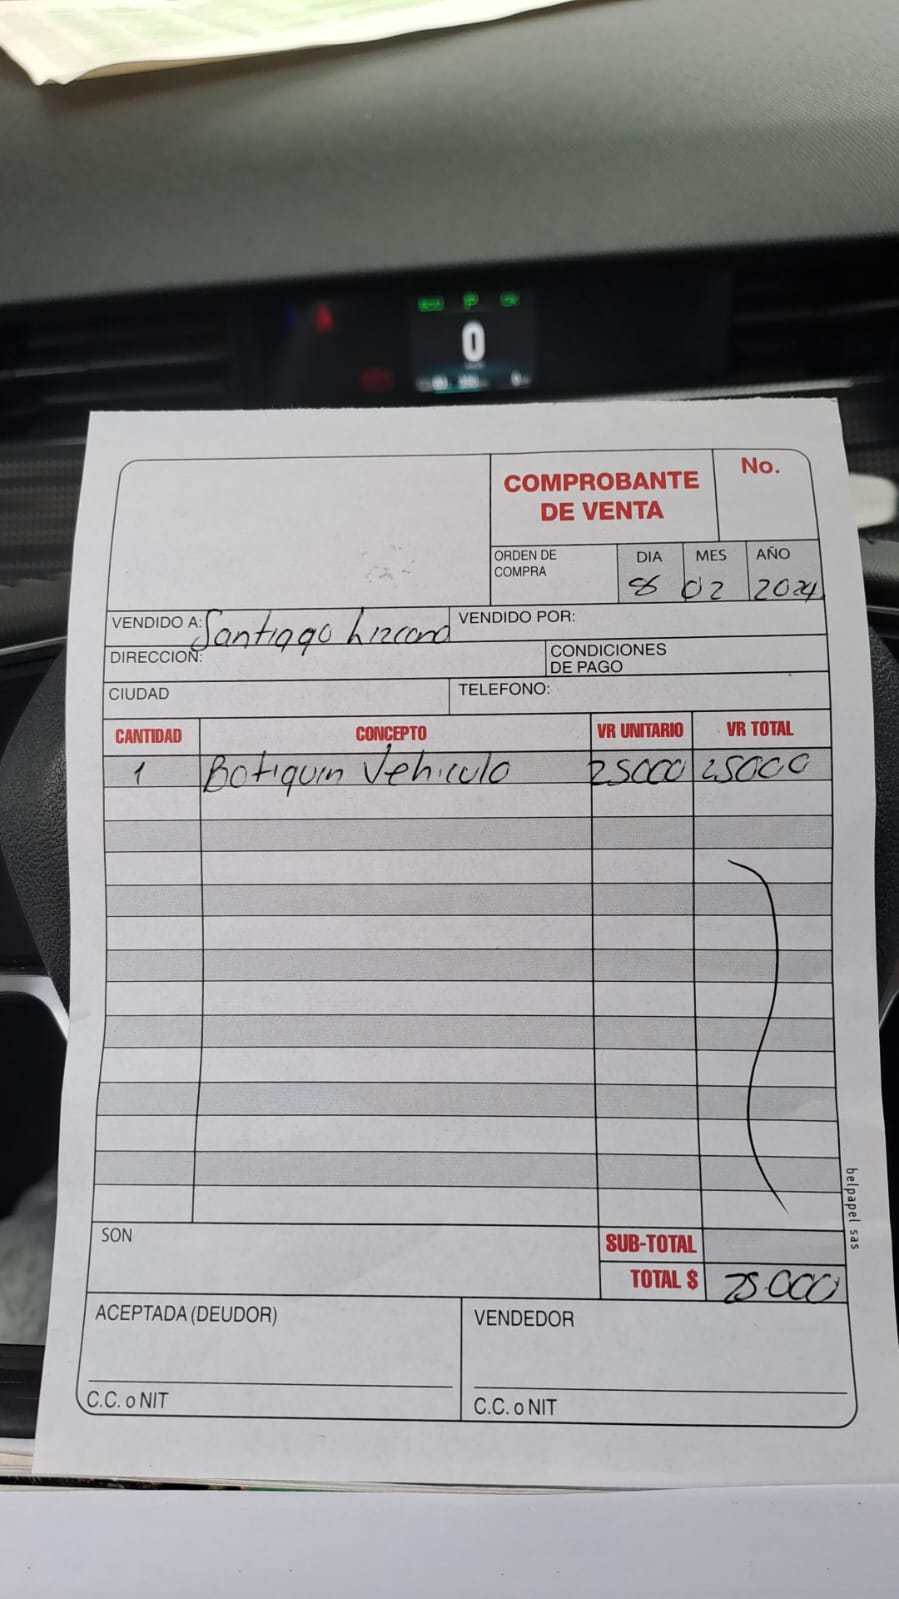 0
COMPROBANTE
DE VENTA
No.
ORDEN DE
COMPRA
DIA
MES
AÑO
8
02
2024
VENDIDO A: Santiago Lizcano
VENDIDO POR:
DIRECCION:
CONDICIONES
DE PAGO
CIUDAD
TELEFONO:
CANTIDAD CONCEPTO VR UNITARIO VR TOTAL
1 Botiquin Vehiculo 25000 25000
belpapel sas
SON
SUB-TOTAL
TOTAL $ 25.000
ACEPTADA (DEUDOR)
VENDEDOR
C.C. o NIT
C.C. o NIT